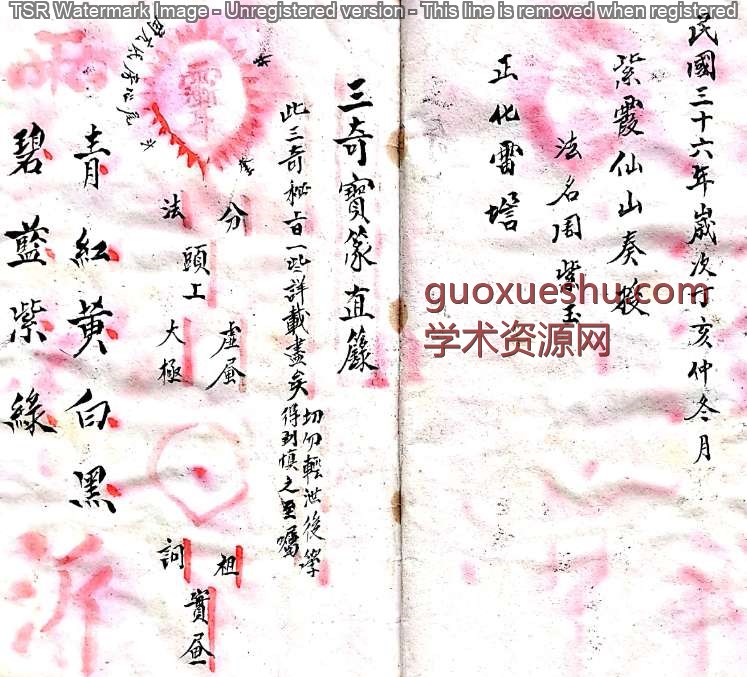 TSR Watermark Image - Unregistered version - This line is removed when registered
民國三十六年歲次丁亥仲冬月
紫霞仙山奏
法名周紫玉
正化雷壇
guoxueshu.com
学术资源网
三奇寶篆直籙
此三奇秘旨一些詳載盡矣
切勿輕泄後學
得到慎之至囑
分
虛
祖
頭工
實
法
大極
詞
青紅黃白黑
碧藍紫綠